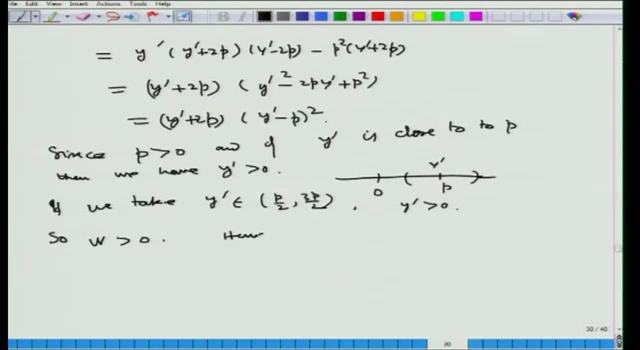 File Edit View Insert Actions Tools Help
= y'(y'+2p)(y'-2p) - p²(y'+2p)
= (y'+2p) (y'² - 2py' + p²)
= (y'+2p) (y'-p)².
Since p>0 and if y' is close to to p
then we have y'>0.
y'
0 p
If we take y' ∈ (p/2, 3p/2), y'>0.
So W>0. Hen
30 / 40
30